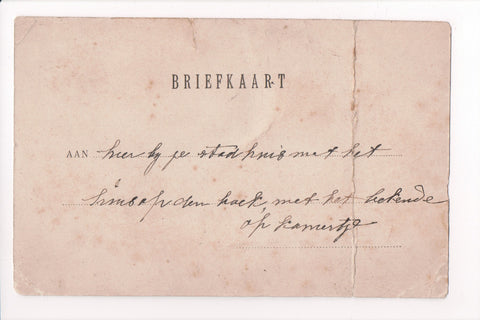 BRIEFKAART
AAN hier bij je stadhuis met het
huis op den hoek, met het bekende
op kamertje